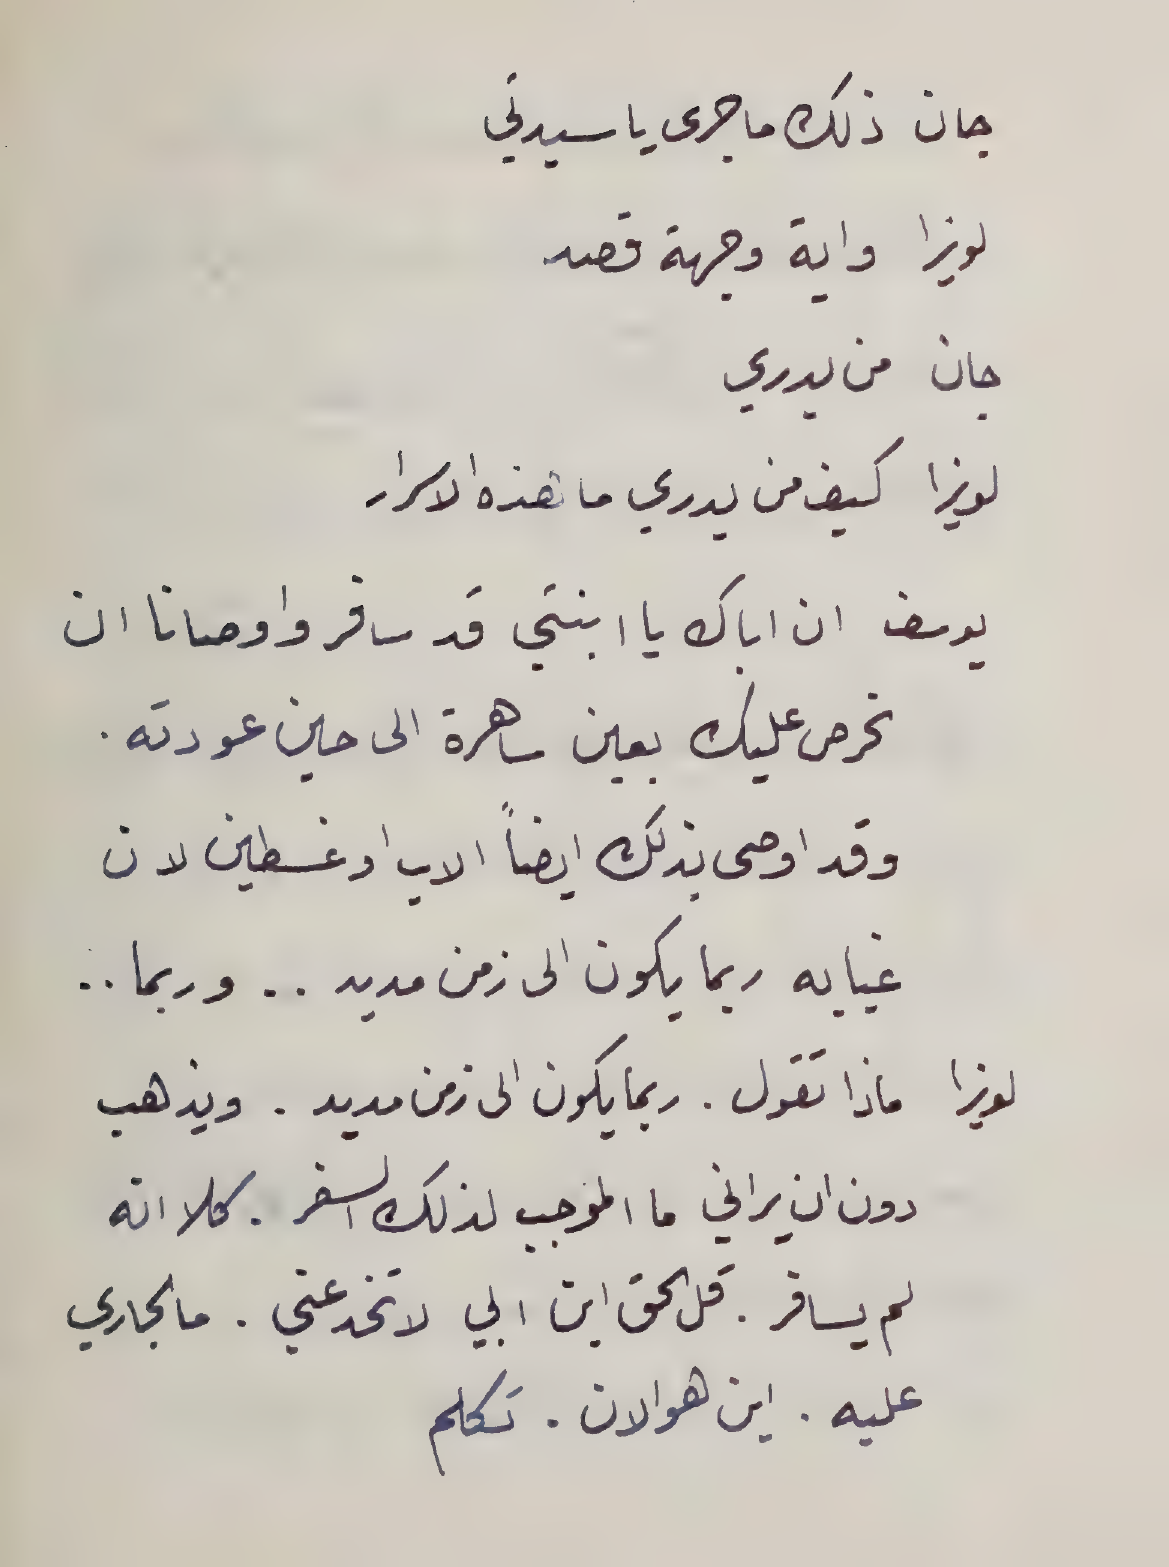 جان ذلك ما جرى يا سيدتي
لويزا واية وجهة قصد
جان من يدري
لويزا كيف من يدري ما هذه الاسرار
يوسف ان اباك يا ابنتي قد سافر واوصانا ان
نحرص عليك بعين ساهرة الى حين عودته .
وقد اوصى بذلك ايضاً الاب اوغسطين لان
غيابه ربما يكون الى زمن مديد .. وربما ..
لويزا ماذا تقول . ربما يكون الى زمن مديد . ويذهب
دون ان يراني ما الموجب لذلك السفر . كلا انه
لم يسافر . قل الحق اين ابي لا تخدعني . ما الجاري
عليه . اين هو الان . تكلم